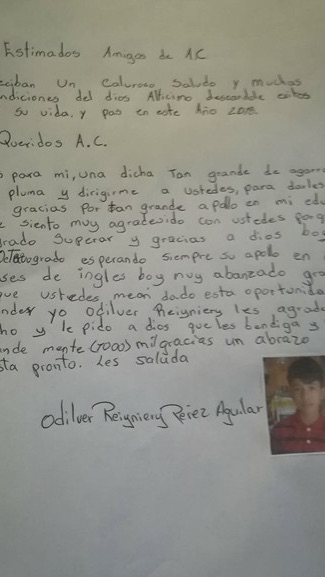 Estimados Amigos de A.C
Un Caluroso Saludo y muchas
del dios Alticimo deseandole exitos
su vida, y pas en este Año 2018.
Queridos A.C.
para mi, una dicha Tan grande de agarrar
pluma y dirigirme a ustedes, para darles
gracias por tan grande apollo en mi
siento muy agradesido con ustedes
Superar y gracias a dios boy
esperando siempre su apollo en
de ingles boy muy abanzado
ustedes mean dado esta oportunida
yo Odilver Reigniery les
y le pido a dios que les bendiga y
mente (7000) milgracias un abrazo
pronto. Les saluda
Odilver Reigniery Pérez Aguilar